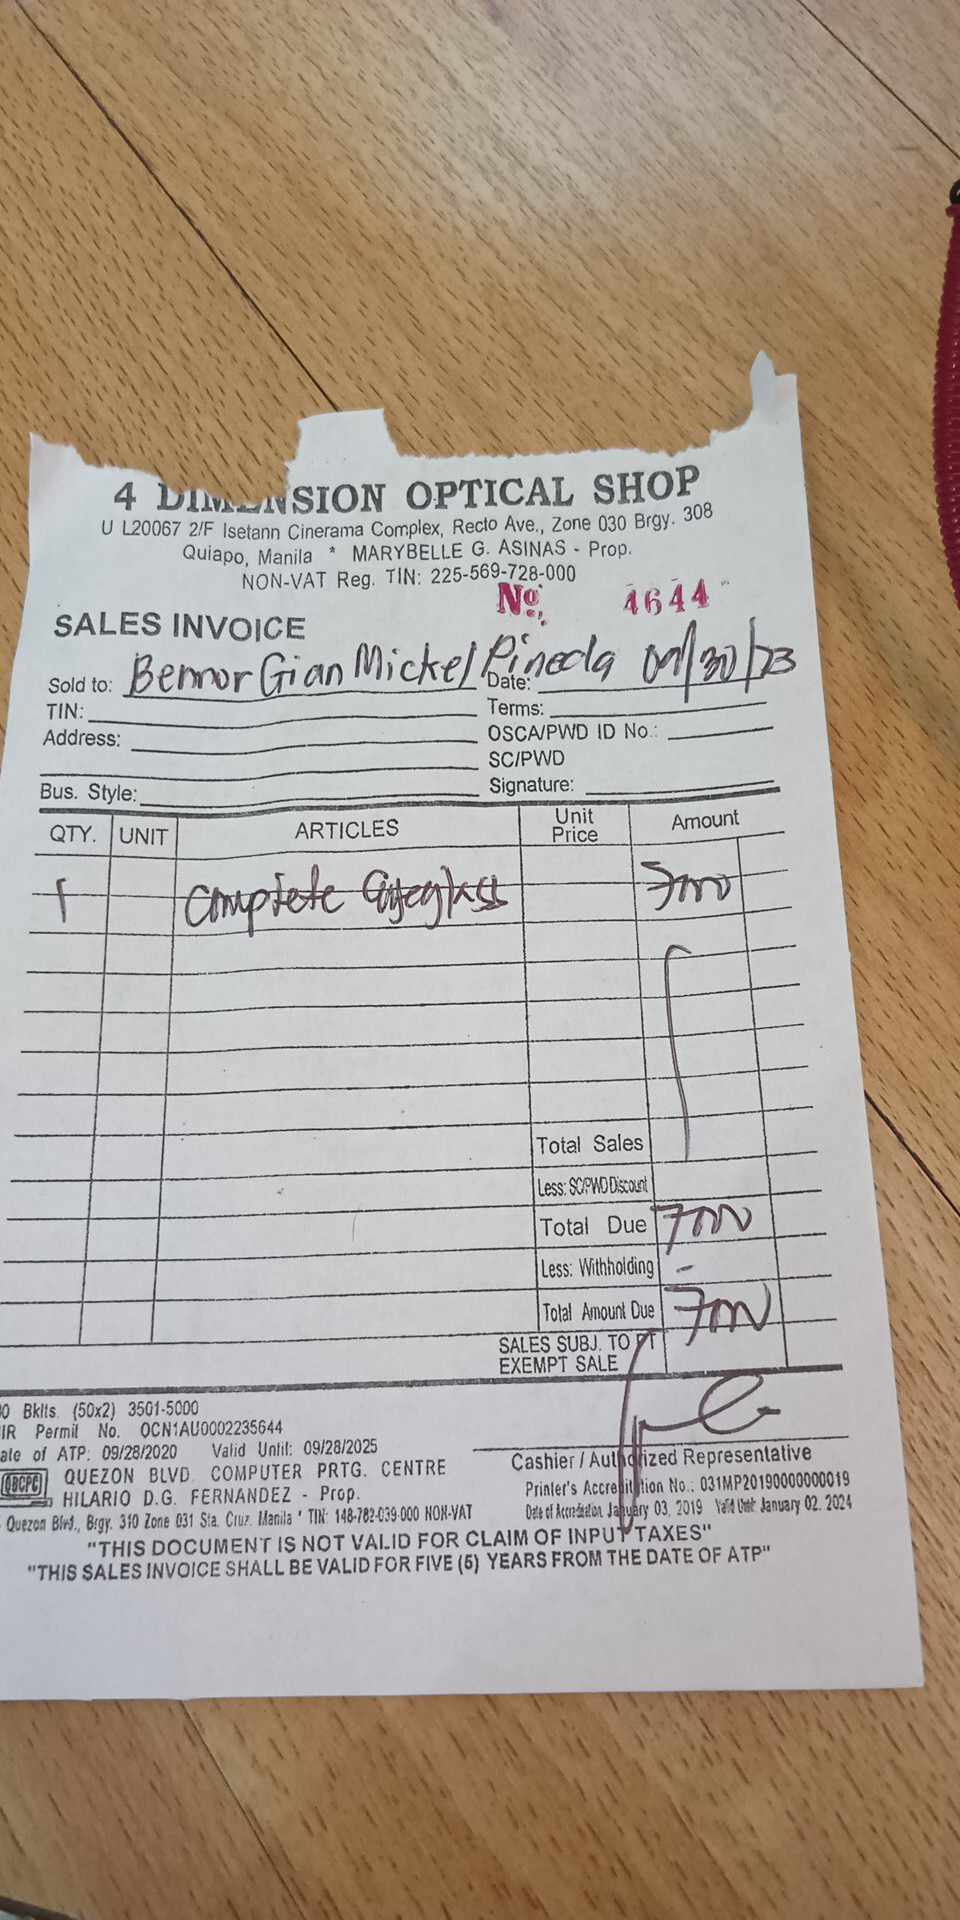 4 DIMENSION OPTICAL SHOP
U L20067 2/F Isetann Cinerama Complex, Recto Ave., Zone 030 Brgy. 308
Quiapo, Manila * MARYBELLE G. ASINAS - Prop.
NON-VAT Reg. TIN: 225-569-728-000
No. 4644
SALES INVOICE
Sold to: Bennor Gian Mickel Pineda Date: 09/30/23
TIN: Terms:
Address: OSCA/PWD ID No.:
SC/PWD
Bus. Style: Signature:
QTY. UNIT ARTICLES Unit Price Amount
1 Complete Eyeglass 7000
Total Sales
Less: SC/PWD Discount
Total Due 7000
Less: Withholding -
Total Amount Due 7000
SALES SUBJ. TO PT
EXEMPT SALE
0 Bklts. (50x2) 3501-5000
IR Permit No. OCN1AU0002235644
ate of ATP: 09/28/2020 Valid Until: 09/28/2025
QBCPC QUEZON BLVD. COMPUTER PRTG. CENTRE
HILARIO D.G. FERNANDEZ - Prop.
Quezon Blvd., Brgy. 310 Zone 031 Sta. Cruz. Manila * TIN: 148-782-039-000 NON-VAT
Cashier / Authorized Representative
Printer's Accreditation No.: 031MP20190000000019
Date of Accreditation January 03, 2019 Valid Until: January 02. 2024
"THIS DOCUMENT IS NOT VALID FOR CLAIM OF INPUT TAXES"
"THIS SALES INVOICE SHALL BE VALID FOR FIVE (5) YEARS FROM THE DATE OF ATP"